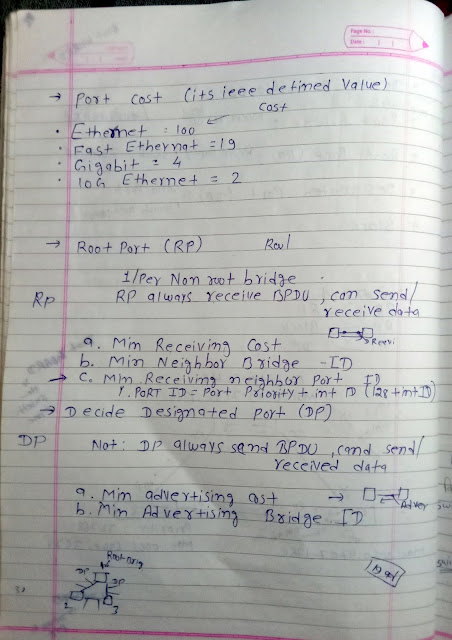 Page No.
Date
→ Port cost (its ieee defined Value)
cost
• Ethernet : 100
• Fast Ethernat = 19
• Gigabit = 4
• 10G Ethernet = 2
→ Root Port (RP)
1/Per Non root bridge
RP RP always receive BPDU, can send/
receive data
a. Min Receiving Cost
b. Min Neighbor Bridge -ID
→ c. Min Receiving neighbor Port ID
Y. PORT ID = Port Priority + int ID (128 + int ID)
→ Decide Designated Port (DP)
DP Not: DP always send BPDU, cand send/
received data
a. Min advertising cost → Adver
b. Min Advertising Bridge ID
DP
DP
2 3